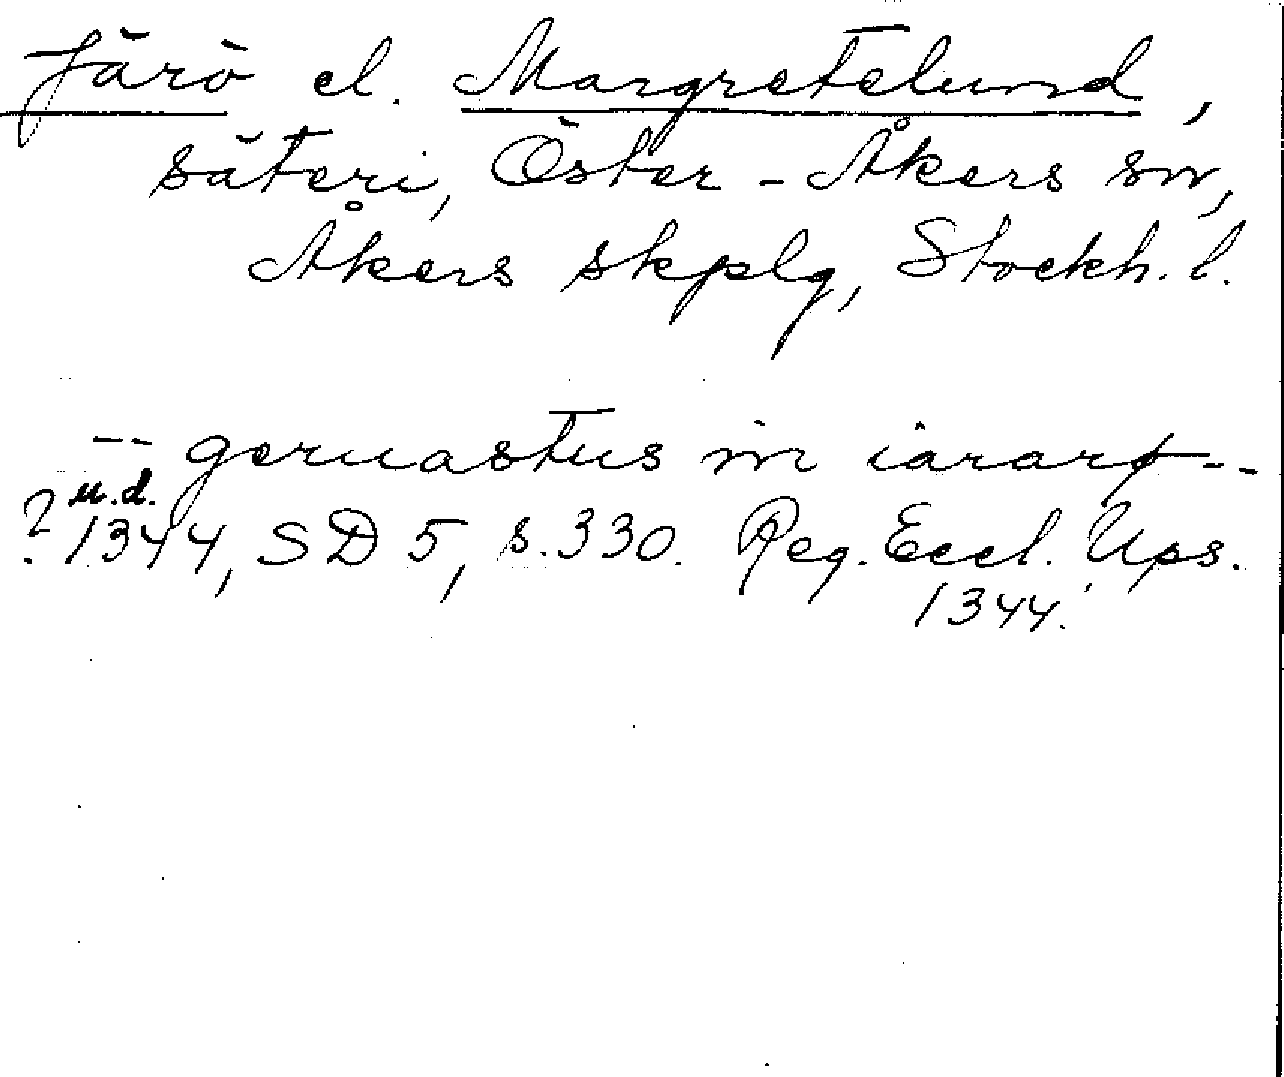 Järö el. Margretelund,
säteri, Öster-Åkers sn,
Åkers skplg, Stockh. l.
-- geruastus in iararø --
u.d.
? 1344, SD 5, s. 330. Reg. Eccl. Ups.
1344.